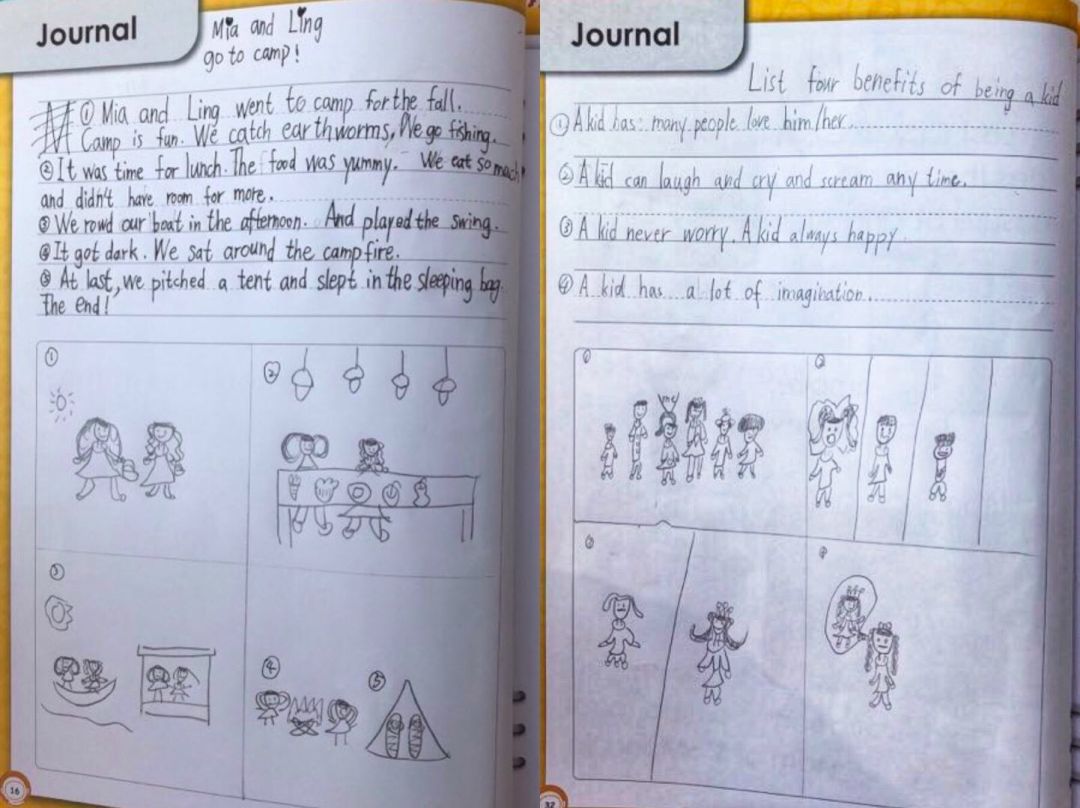 Journal
Mia and Ling
go to camp!
① Mia and Ling went to camp for the fall.
Camp is fun. We catch earthworms, We go fishing.
② It was time for lunch. The food was yummy. We eat so much
and didn't have room for more.
③ We rowd our boat in the afternoon. And played the swing.
④ It got dark. We sat around the campfire.
⑤ At last, we pitched a tent and slept in the sleeping bag.
The end!
①
②
③
④
⑤
16
Journal
List four benefits of being a kid
① A kid has: many people love him/her.
② A kid can laugh and cry and scream any time.
③ A kid never worry. A kid always happy.
④ A kid has a lot of imagination.
①
②
③
④
32